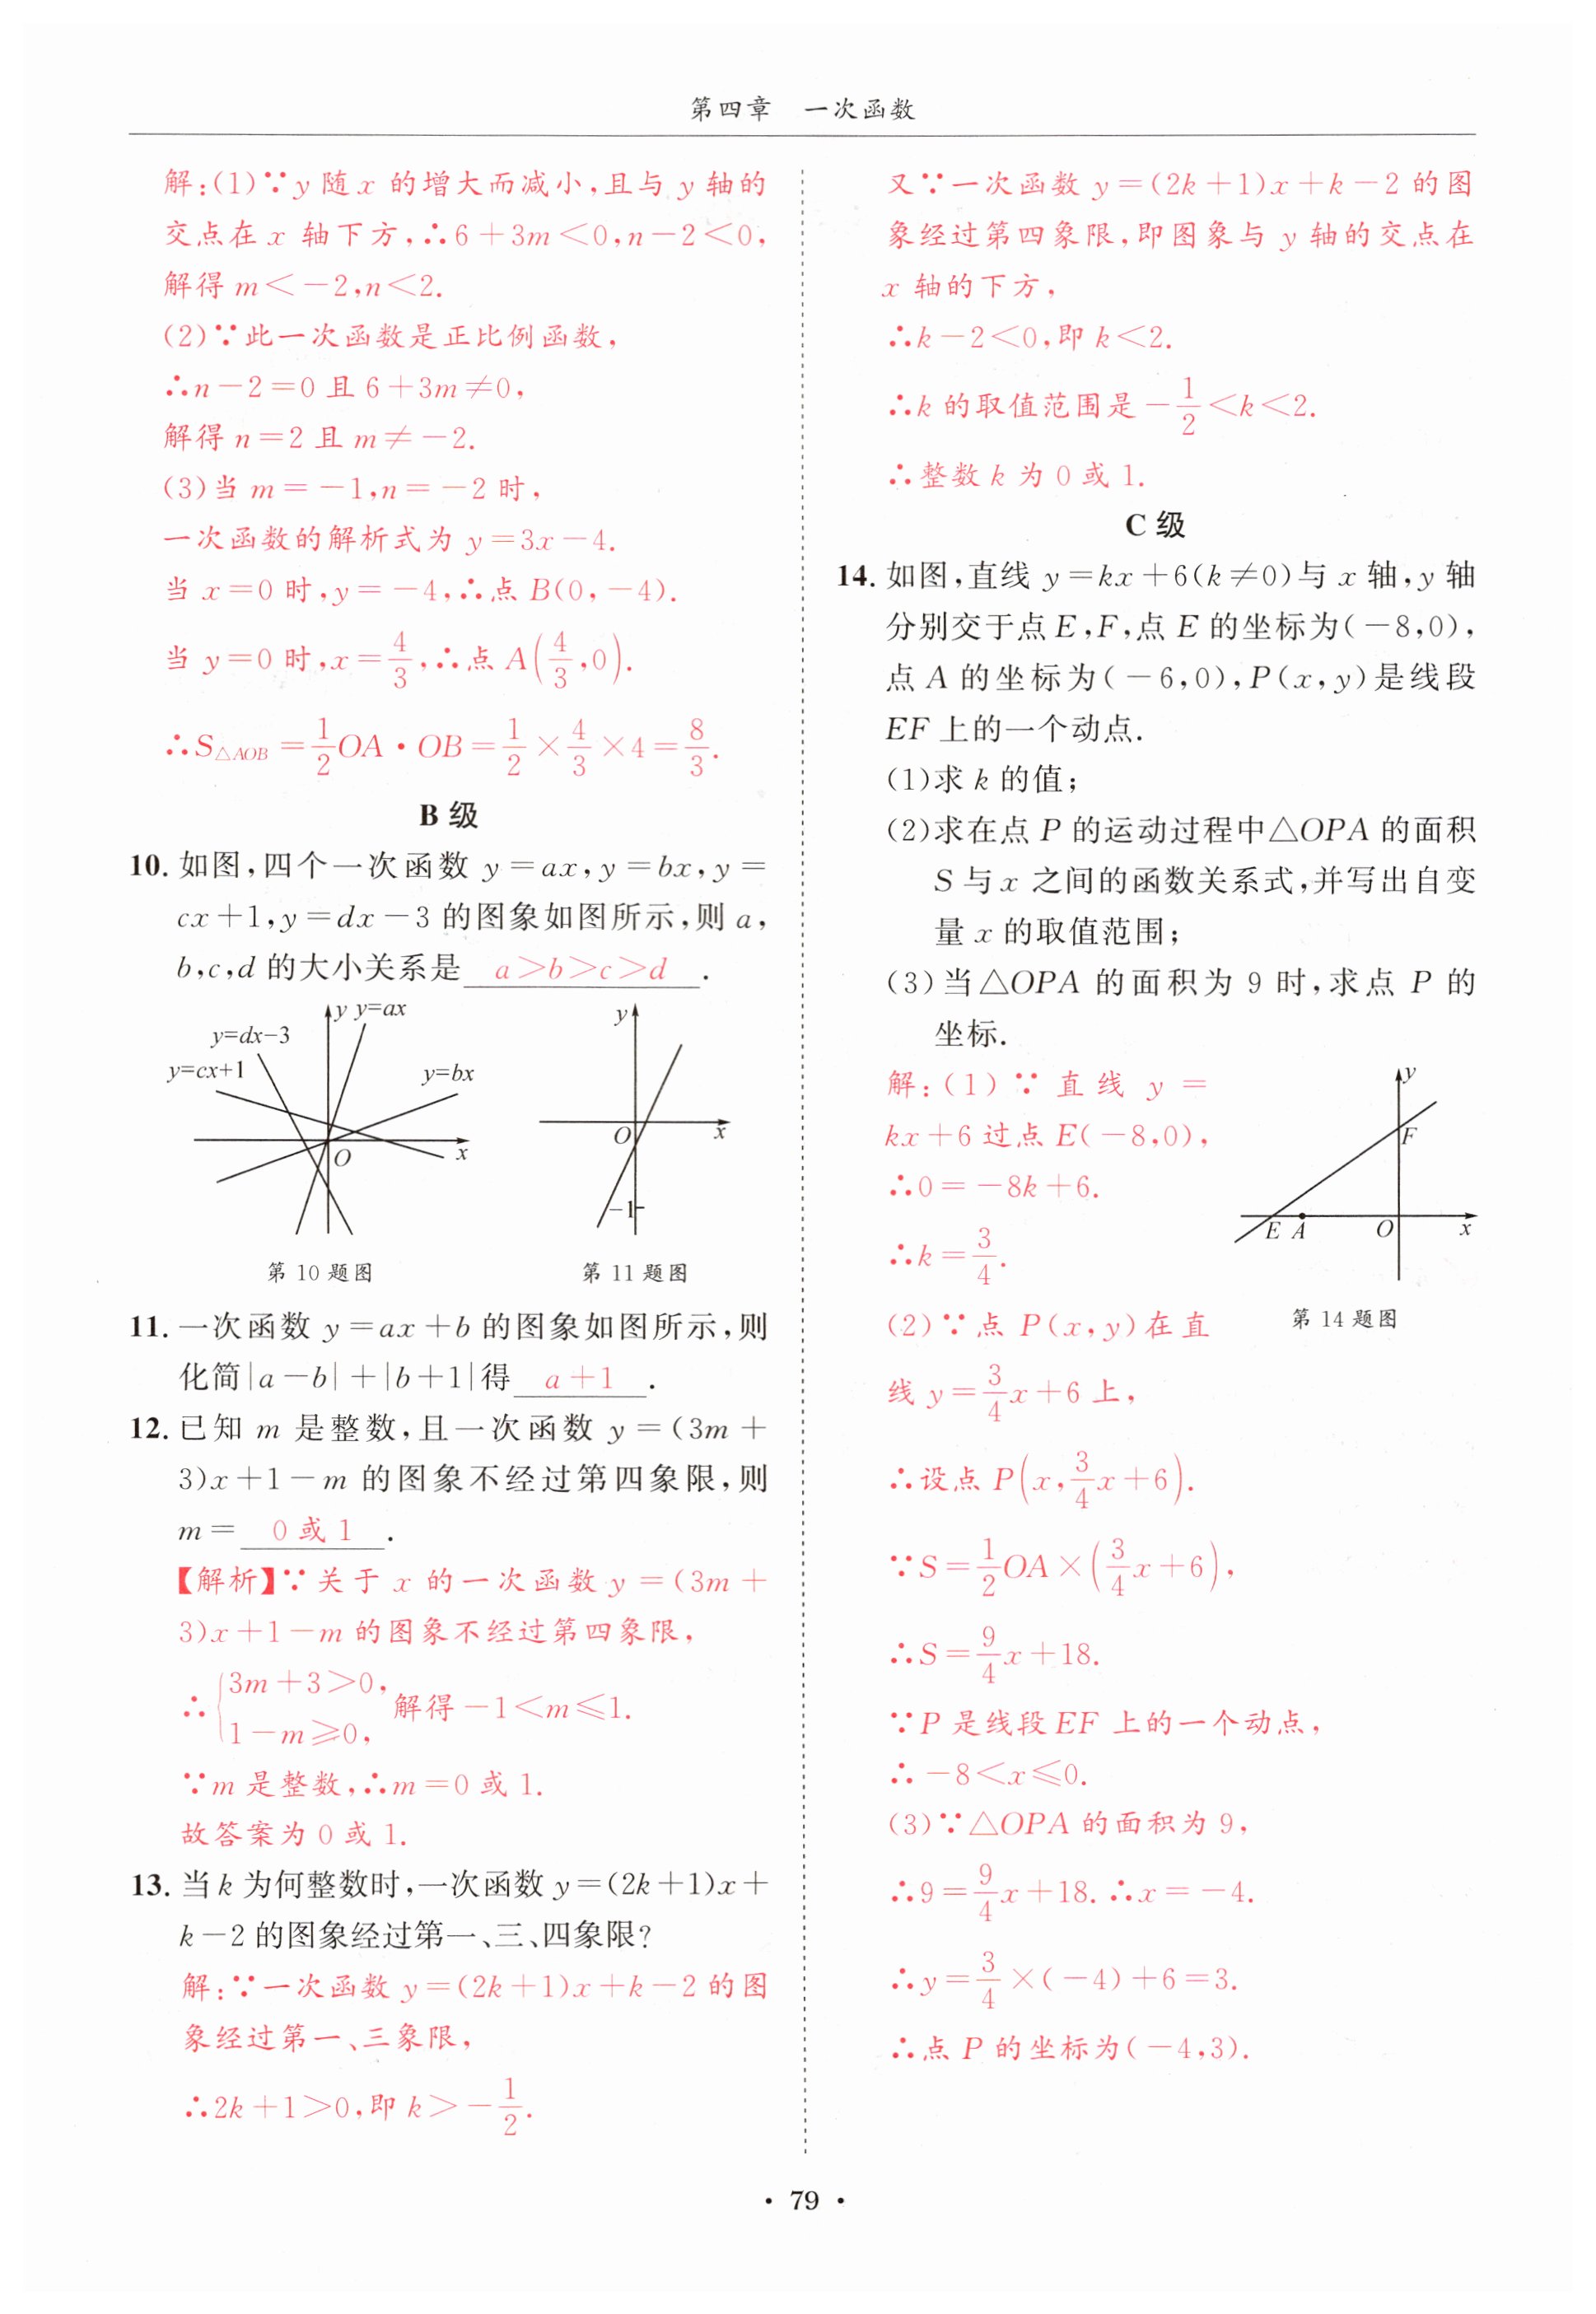 第四章 一次函数
解:(1)∵y 随 x 的增大而减小,且与 y 轴的
交点在 x 轴下方,∴6+3m<0,n-2<0,
解得 m<-2,n<2.
(2)∵此一次函数是正比例函数,
∴n-2=0 且 6+3m≠0,
解得 n=2 且 m≠-2.
(3)当 m=-1,n=-2 时,
一次函数的解析式为 y=3x-4.
当 x=0 时,y=-4,∴点 B(0,-4).
当 y=0 时,x=4/3,∴点 A(4/3,0).
∴S△AOB=1/2OA·OB=1/2×4/3×4=8/3.
B 级
10. 如图,四个一次函数 y=ax,y=bx,y=
cx+1,y=dx-3 的图象如图所示,则 a,
b,c,d 的大小关系是 a>b>c>d .
y y=ax
y=dx-3
y=cx+1
y=bx
O
x
第 10 题图
y
O
x
-1
第 11 题图
11. 一次函数 y=ax+b 的图象如图所示,则
化简|a-b|+|b+1|得 a+1 .
12. 已知 m 是整数,且一次函数 y=(3m+
3)x+1-m 的图象不经过第四象限,则
m= 0 或 1 .
【解析】∵关于 x 的一次函数 y=(3m+
3)x+1-m 的图象不经过第四象限,
∴{3m+3>0,
1-m≥0, 解得-1<m≤1.
∵m 是整数,∴m=0 或 1.
故答案为 0 或 1.
13. 当 k 为何整数时,一次函数 y=(2k+1)x+
k-2 的图象经过第一、三、四象限?
解:∵一次函数 y=(2k+1)x+k-2 的图
象经过第一、三象限,
∴2k+1>0,即 k>-1/2.
又∵一次函数 y=(2k+1)x+k-2 的图
象经过第四象限,即图象与 y 轴的交点在
x 轴的下方,
∴k-2<0,即 k<2.
∴k 的取值范围是-1/2<k<2.
∴整数 k 为 0 或 1.
C 级
14. 如图,直线 y=kx+6(k≠0)与 x 轴,y 轴
分别交于点 E,F,点 E 的坐标为(-8,0),
点 A 的坐标为(-6,0),P(x,y)是线段
EF 上的一个动点.
(1)求 k 的值;
(2)求在点 P 的运动过程中△OPA 的面积
S 与 x 之间的函数关系式,并写出自变
量 x 的取值范围;
(3)当△OPA 的面积为 9 时,求点 P 的
坐标.
解:(1)∵直线 y=
kx+6 过点 E(-8,0),
∴0=-8k+6.
∴k=3/4.
y
F
E A O x
第 14 题图
(2)∵点 P(x,y)在直
线 y=3/4x+6 上,
∴设点 P(x,3/4x+6).
∵S=1/2OA×(3/4x+6),
∴S=9/4x+18.
∵P 是线段 EF 上的一个动点,
∴-8<x≤0.
(3)∵△OPA 的面积为 9,
∴9=9/4x+18.∴x=-4.
∴y=3/4×(-4)+6=3.
∴点 P 的坐标为(-4,3).
· 79 ·